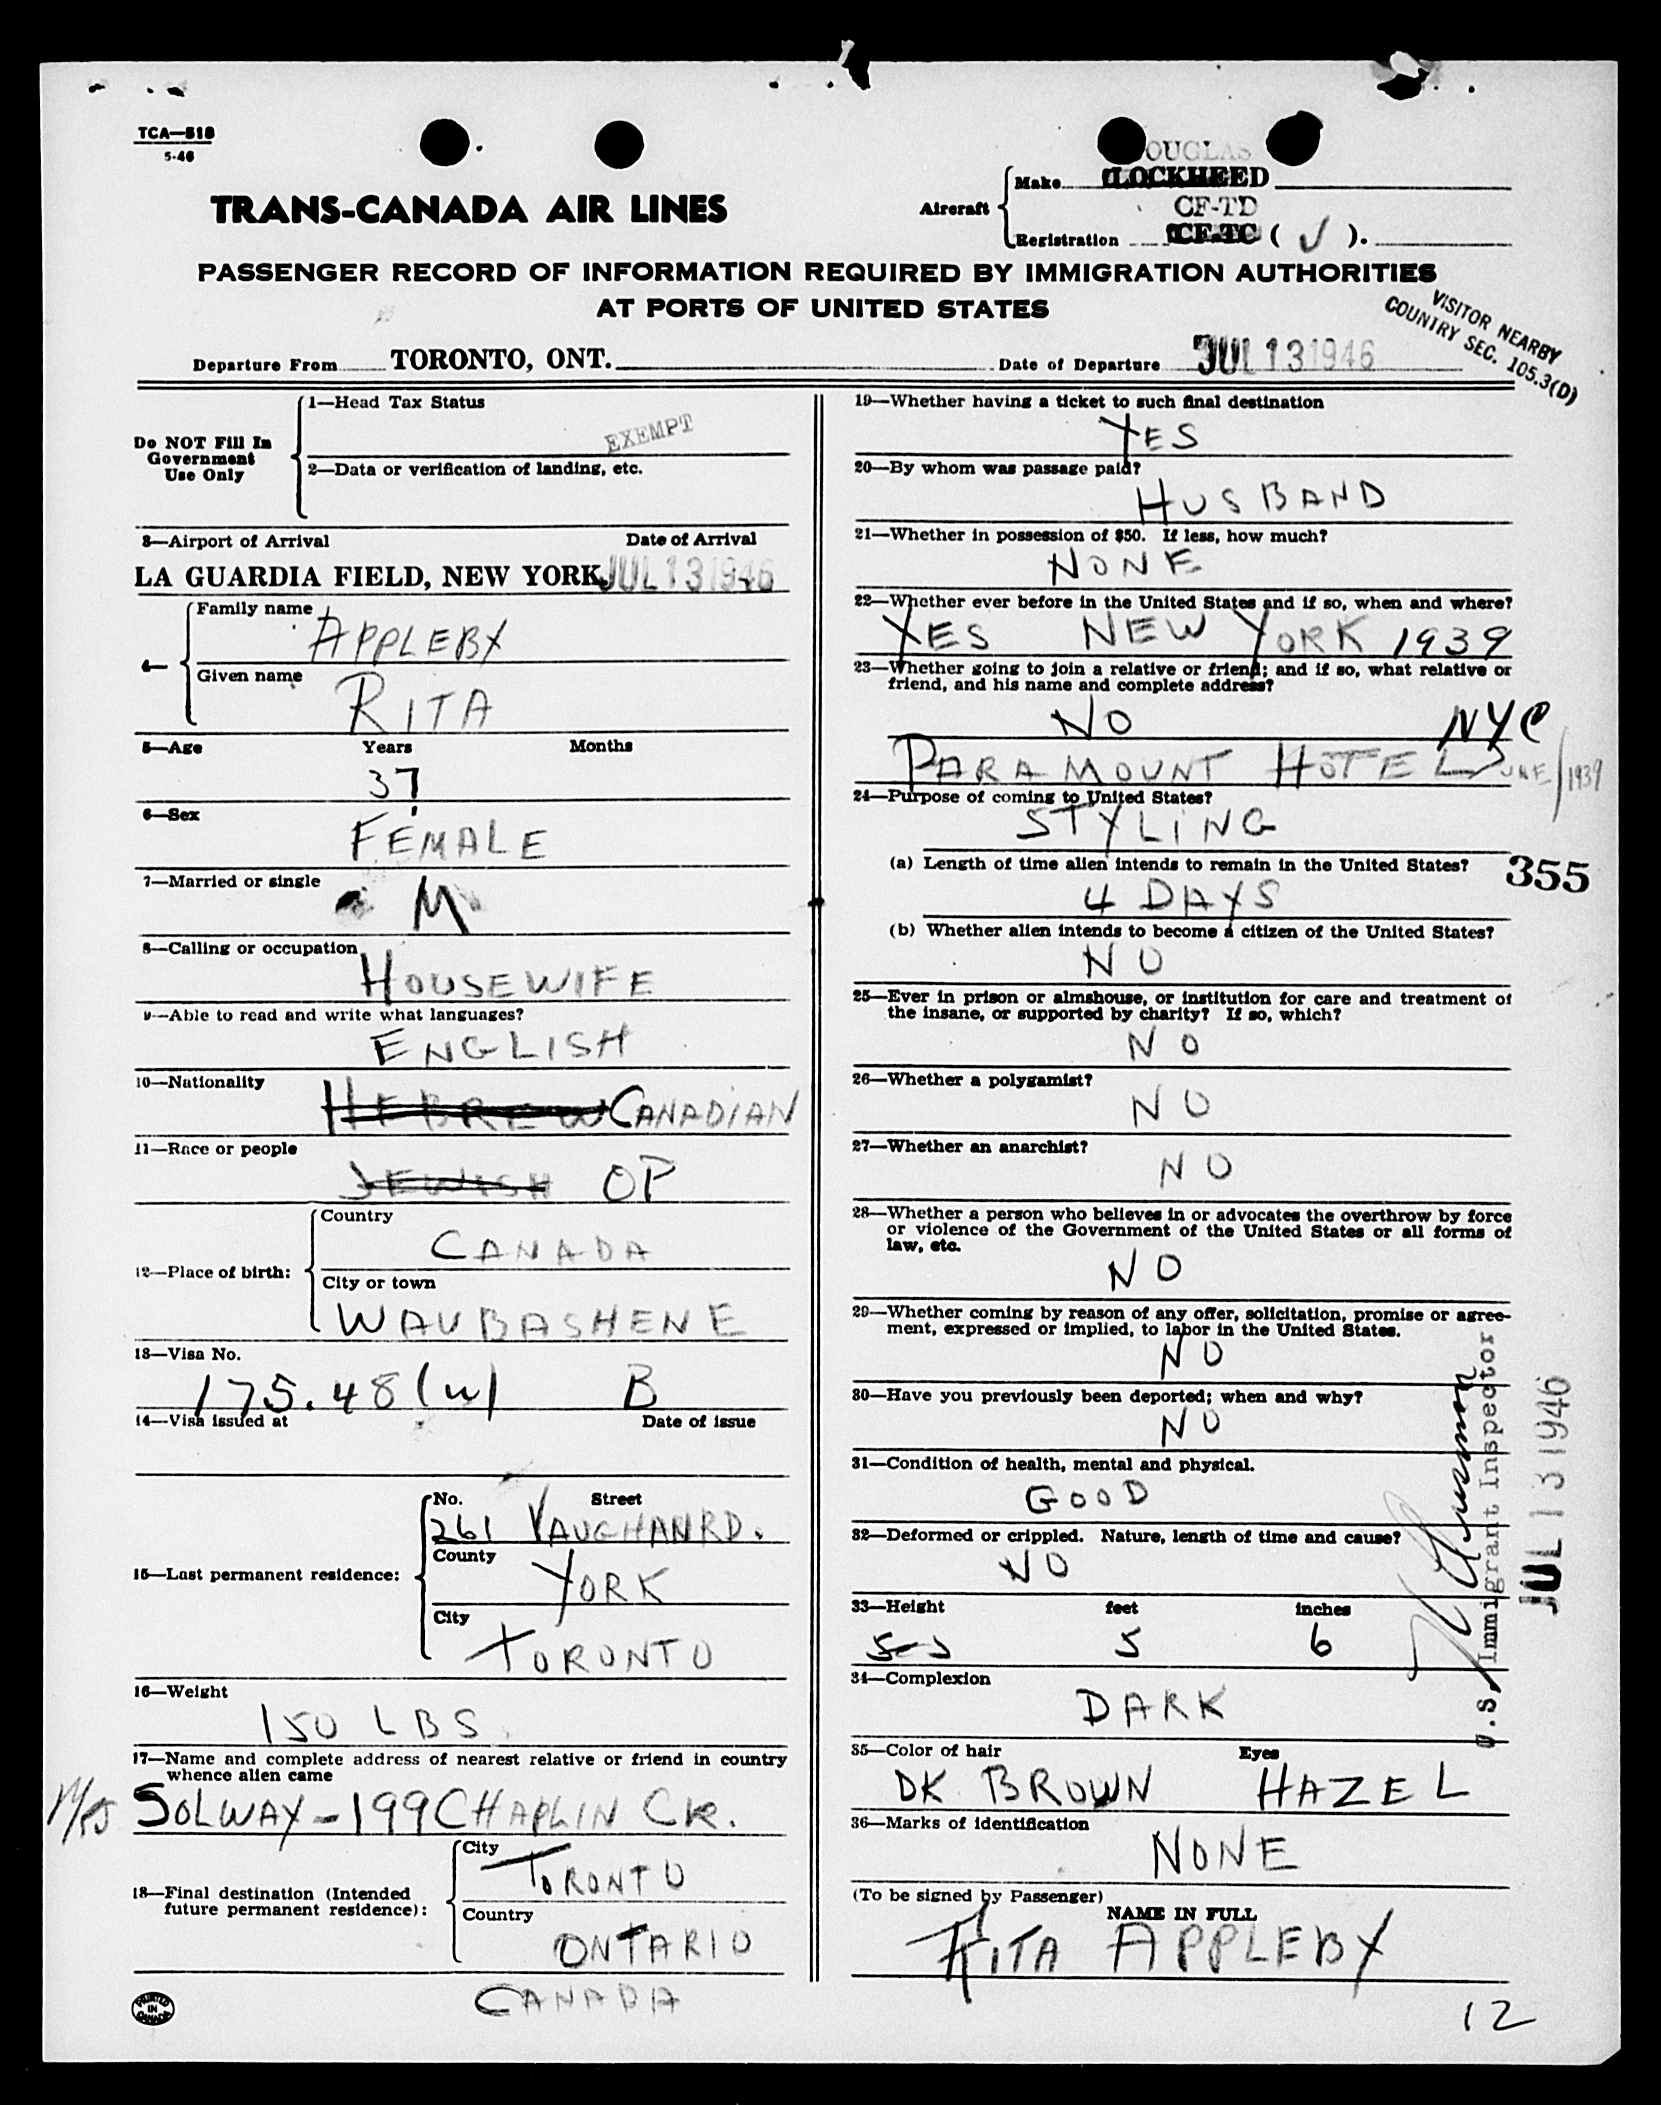 TCA—518
5-46
TRANS-CANADA AIR LINES
Aircraft
Make
OUGLAS
LOCKHEED
CF-TD
Registration CF-TC ( ✓ ).
PASSENGER RECORD OF INFORMATION REQUIRED BY IMMIGRATION AUTHORITIES
AT PORTS OF UNITED STATES
VISITOR NEARBY
COUNTRY SEC. 105.3(D)
Departure From TORONTO, ONT. Date of Departure JUL 13 1946
Do NOT Fill In
Government
Use Only
1—Head Tax Status
EXEMPT
2—Data or verification of landing, etc.
3—Airport of Arrival Date of Arrival
LA GUARDIA FIELD, NEW YORK, JUL 13 1946
4—
Family name
APPLEBY
Given name
RITA
5—Age Years Months
37
6—Sex
FEMALE
7—Married or single
M
8—Calling or occupation
HOUSEWIFE
9—Able to read and write what languages?
ENGLISH
10—Nationality
HEBREW CANADIAN
11—Race or people
JEWISH OP
12—Place of birth:
Country
CANADA
City or town
WAUBASHENE
13—Visa No.
175.48(w) B
14—Visa issued at Date of issue
15—Last permanent residence:
No. Street
261 VAUGHAN RD.
County
YORK
City
TORONTO
16—Weight
150 LBS.
17—Name and complete address of nearest relative or friend in country
whence alien came
SOLWAY - 199 CHAPLIN CR.
18—Final destination (Intended
future permanent residence):
City
TORONTO
Country
ONTARIO
CANADA
PRINTED
IN
CANADA
19—Whether having a ticket to such final destination
YES
20—By whom was passage paid?
HUSBAND
21—Whether in possession of $50. If less, how much?
NONE
22—Whether ever before in the United States and if so, when and where?
YES NEW YORK 1939
23—Whether going to join a relative or friend; and if so, what relative or
friend, and his name and complete address?
NO NYC
PARAMOUNT HOTEL JUNE/1939
24—Purpose of coming to United States?
STYLING
(a) Length of time alien intends to remain in the United States?
355
4 DAYS
(b) Whether alien intends to become a citizen of the United States?
NO
25—Ever in prison or almshouse, or institution for care and treatment of
the insane, or supported by charity? If so, which?
NO
26—Whether a polygamist?
NO
27—Whether an anarchist?
NO
28—Whether a person who believes in or advocates the overthrow by force
or violence of the Government of the United States or all forms of
law, etc.
NO
29—Whether coming by reason of any offer, solicitation, promise or agree-
ment, expressed or implied, to labor in the United States.
NO
30—Have you previously been deported; when and why?
NO
31—Condition of health, mental and physical.
GOOD
32—Deformed or crippled. Nature, length of time and cause?
NO
33—Height feet inches
5 6
34—Complexion
DARK
35—Color of hair Eyes
DK BROWN HAZEL
36—Marks of identification
NONE
(To be signed by Passenger)
NAME IN FULL
RITA APPLEBY
U.S. Immigrant Inspector
JUL 13 1946
12